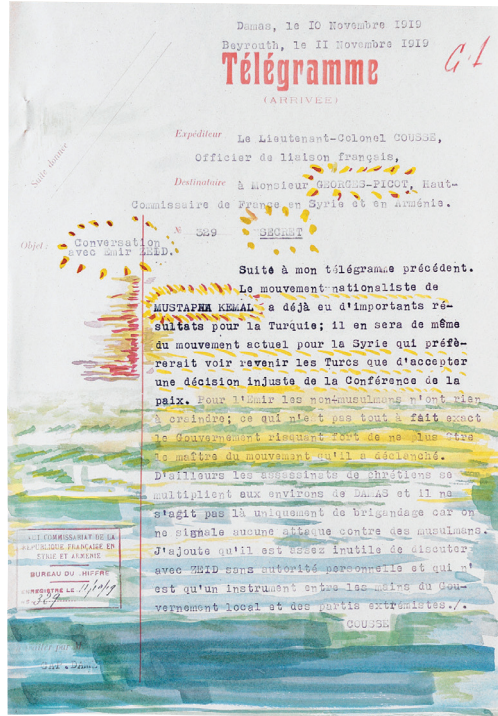 Damas, le 10 Novembre 1919
Beyrouth, le 11 Novembre 1919
G.1
Télégramme
(ARRIVÉE)
Suite donnée
Expéditeur Le Lieutenant-Colonel COUSSE,
Officier de liaison français,
Destinataire à Monsieur GEORGES-PICOT, Haut-
Commissaire de France en Syrie et en Arménie.
№ 329 SECRET
Objet: Conversation
avec Emir ZEID.
Suite à mon télégramme précédent.
Le mouvement nationaliste de
MUSTAPHA KEMAL a déjà eu d'importants ré-
sultats pour la Turquie; il en sera de même
du mouvement actuel pour la Syrie qui préfè-
rerait voir revenir les Turcs que d'accepter
une décision injuste de la Conférence de la
paix. Pour l'Emir les non-musulmans n'ont rien
à craindre; ce qui n'e t pas tout à fait exact
le Gouvernement risquant fort de ne plus être
le maître du mouvement qu'il a déclenché.
D'ailleurs les assassinats de chrétiens se
multiplient aux environs de DAMAS et il ne
s'agit pas là uniquement de brigandage car on
ne signale aucune attaque contre des musulmans.
J'ajoute qu'il est assez inutile de discuter
avec ZEID sans autorité personnelle et qui n'
est qu'un instrument entre les mains du Gou-
vernement local et des partis extrémistes./.
COUSSE
HAUT COMMISSARIAT DE LA
RÉPUBLIQUE FRANÇAISE EN
SYRIE ET ARMÉNIE
BUREAU DU CHIFFRE
ENREGISTRÉ LE 11/10/19
329